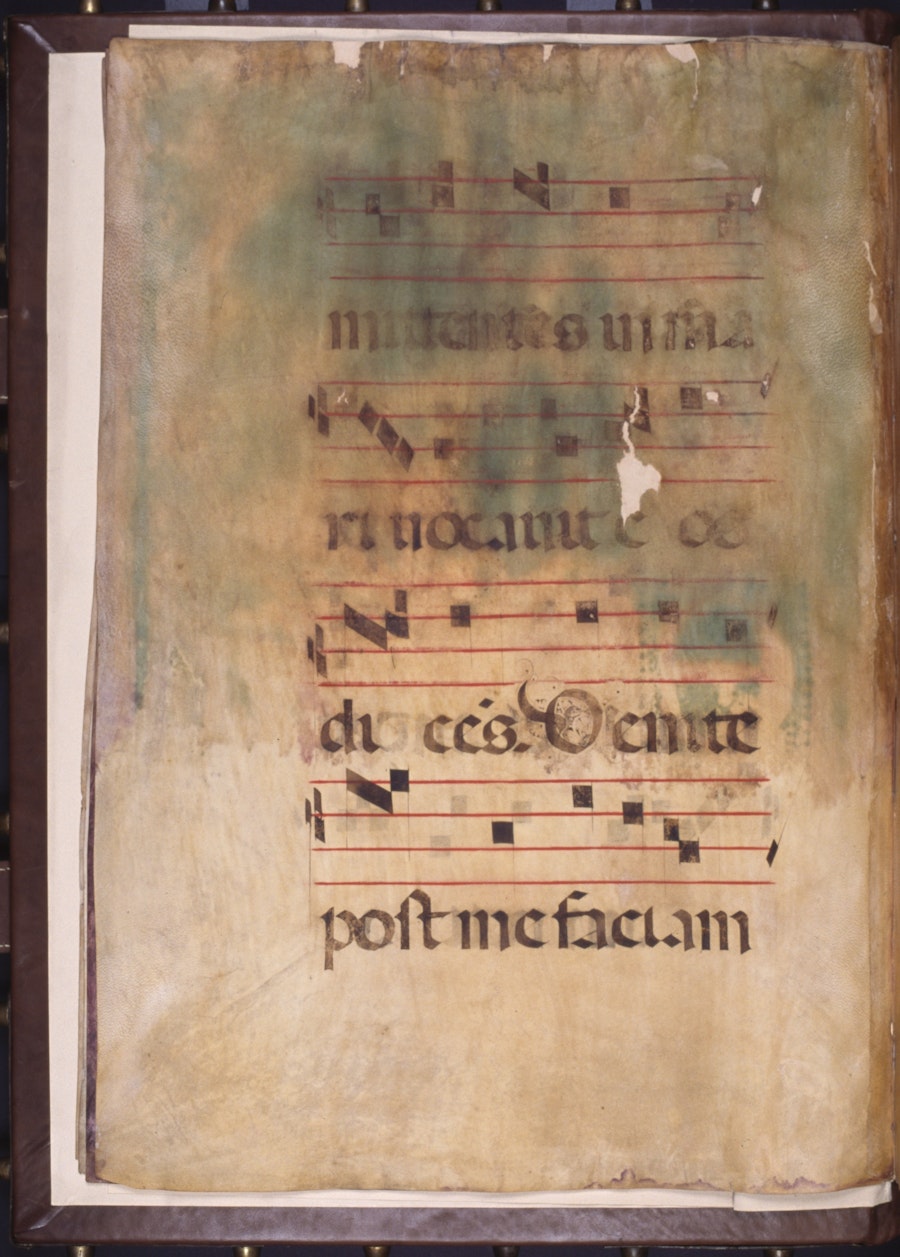 mittentes in ma
ri vocavit e os
di cēs. Venite
post me faciam